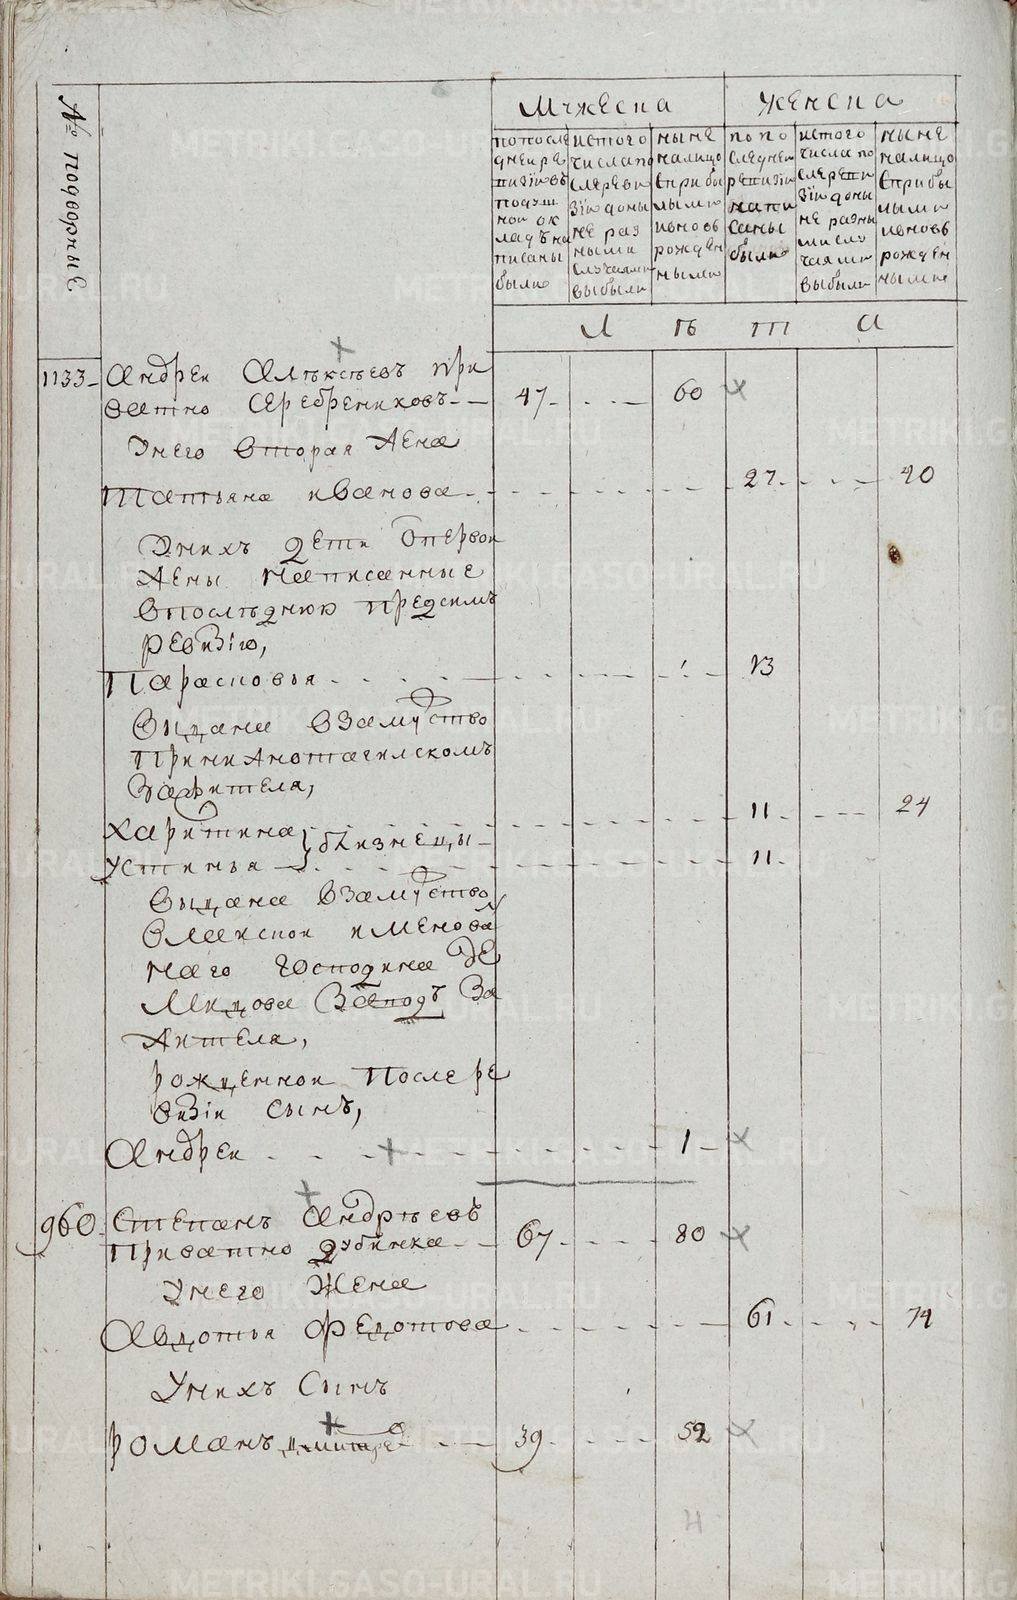 METRIKI.GASO-URAL.RU
№ подворные
Мужеска
женска
по после
дней ре
визiи въ
подуш
ной ок
ладъ на
писаны
были
ис того
числа по
сле реви
зiи до ны
не раз
ными
случаями
выбыли
ныне
налицо
с прибы
лыми
и вновь
рожден
ными
по по
следней
ревизiи
напи
саны
были
ис того
числа по
сле реви
зiи до ны
не разны
ми слу
чаями
выбыли
ныне
налицо
с прибы
лыми
и вновь
рожден
ными
Л ѣ т а
1133 Андреи Алѣксѣевъ при
ватно Серебрениковъ 47 60
У него вторая жена
Татьяна Иванова 27 40
У нихъ дети от первои
жены написанные
в последнюю пред симъ
ревизiю,
Парасковья 13
выдана в замуство
при нижнотагилскомъ
за жителя,
Харитина 11 24
близнецы
Устинья 11
выдана в замуство
в имянова
наго господина Де
мидова заводъ за
жителя,
рожденнои после ре
визiи сынъ,
Андреи 1
960 Степанъ Андрѣевъ
приватно Дубинка 67 80
У него жена
Авдотья Федотова 61 74
У нихъ сынъ
Романъ 39 52
4